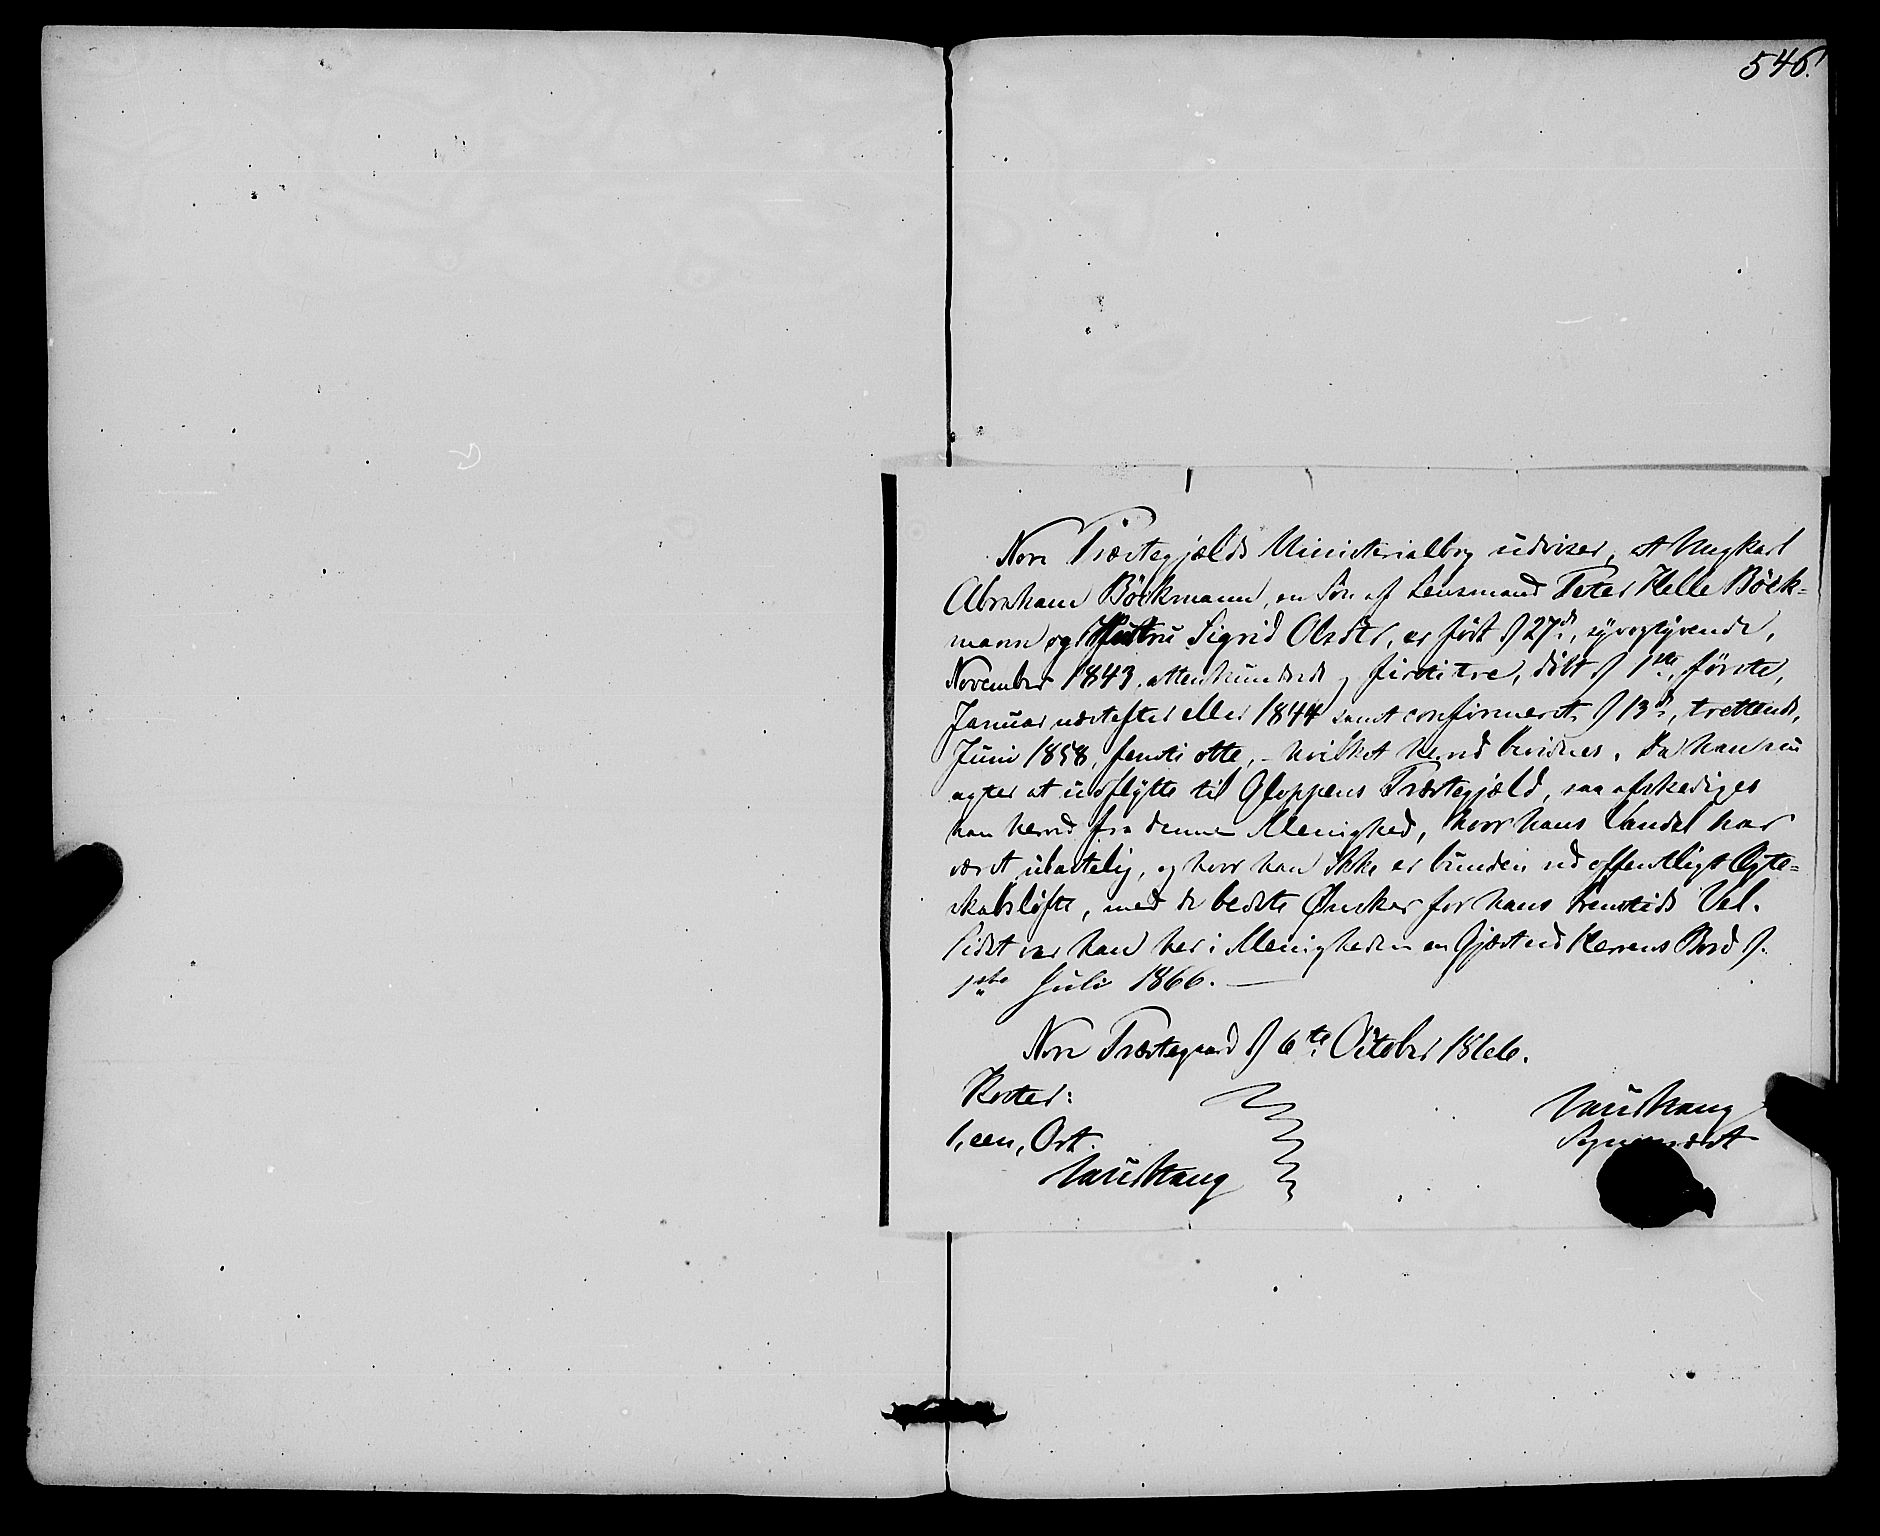 546.
Vors Præstegjælds Ministerialbog udviser, at Ungkarl
Abraham Böckmann, en Sön af Lensmand Peter Helle Böck-
mann og Hustru Sigrid Olsdtr, er född d 27de, syvogtyvende,
November 1843, attenhundrede og firti tre, döbt d 1ste, förste,
Januar næstefter eller 1844 samt confirmeret d 13de, trettende,
Juni 1858, femti otte, - hvilket herved bevidnes. Da han nu
agter at udflytte til Gloppens Præstegjæld, saa afskediges
han herved fra denne Menighed, hvor hans Vandel har
været ulastelig, og hvor han ikke er bunden ved offentligt Ægte-
skabslöfte, med de bedste Ønsker for hans Fremtids Vel.
Sidst var han her i Menigheden en Gjæst ved Herrens Bord d.
1ste Juli 1866.
Præstegaard d 6te October 1866.
Koster:
1, een, Ort.
Sognepræst